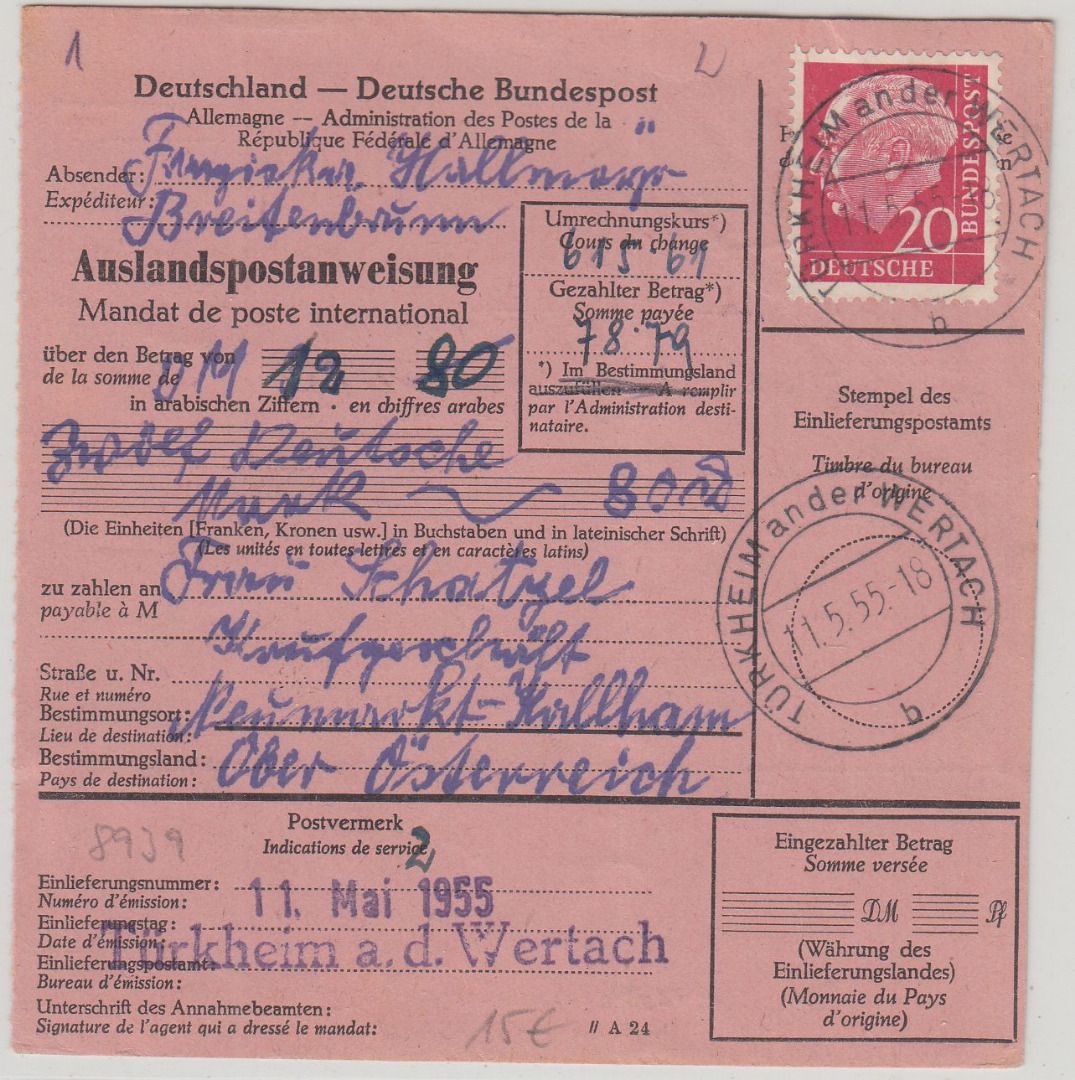 1
Deutschland — Deutsche Bundespost
Allemagne — Administration des Postes de la
République Fédérale d'Allemagne
Absender:
Expéditeur: Hallmayr
Breitenbrunn
Auslandspostanweisung
Mandat de poste international
über den Betrag von
de la somme de DM 12 80
in arabischen Ziffern · en chiffres arabes
zwölf Deutsche
Mark 80
(Die Einheiten [Franken, Kronen usw.] in Buchstaben und in lateinischer Schrift)
(Les unités en toutes lettres et en caractères latins)
zu zahlen an Frau Schatzel
payable à M
Straße u. Nr.
Rue et numéro
Bestimmungsort: Neumarkt-Kallham
Lieu de destination:
Bestimmungsland: Ober Österreich
Pays de destination:
Umrechnungskurs*)
Cours du change
615·61
Gezahlter Betrag*)
Somme payée
78·79
*) Im Bestimmungsland
auszufüllen — A remplir
par l'Administration desti-
nataire.
DEUTSCHE BUNDESPOST
20
TÜRKHEIM an der WERTACH
11.5.55.-18
b
Stempel des
Einlieferungspostamts
Timbre du bureau
d'origine
TÜRKHEIM an der WERTACH
11.5.55.-18
b
Postvermerk
Indications de service
8939
2
Einlieferungsnummer:
Numéro d'émission:
11. Mai 1955
Einlieferungstag:
Date d'émission:
Türkheim a. d. Wertach
Einlieferungspostamt:
Bureau d'émission:
Unterschrift des Annahmebeamten:
Signature de l'agent qui a dressé le mandat:
15€
// A 24
Eingezahlter Betrag
Somme versée
DM Pf
(Währung des
Einlieferungslandes)
(Monnaie du Pays
d'origine)